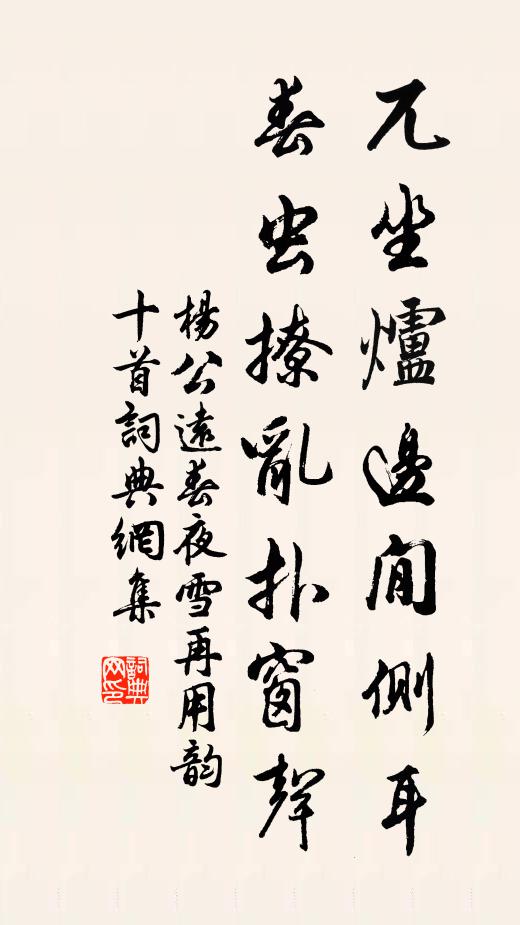 兀坐爐邊閒側耳
春虫撩亂扑窗聲
楊公遠春夜雪再用韵
十首詞典網集
詞典
网印